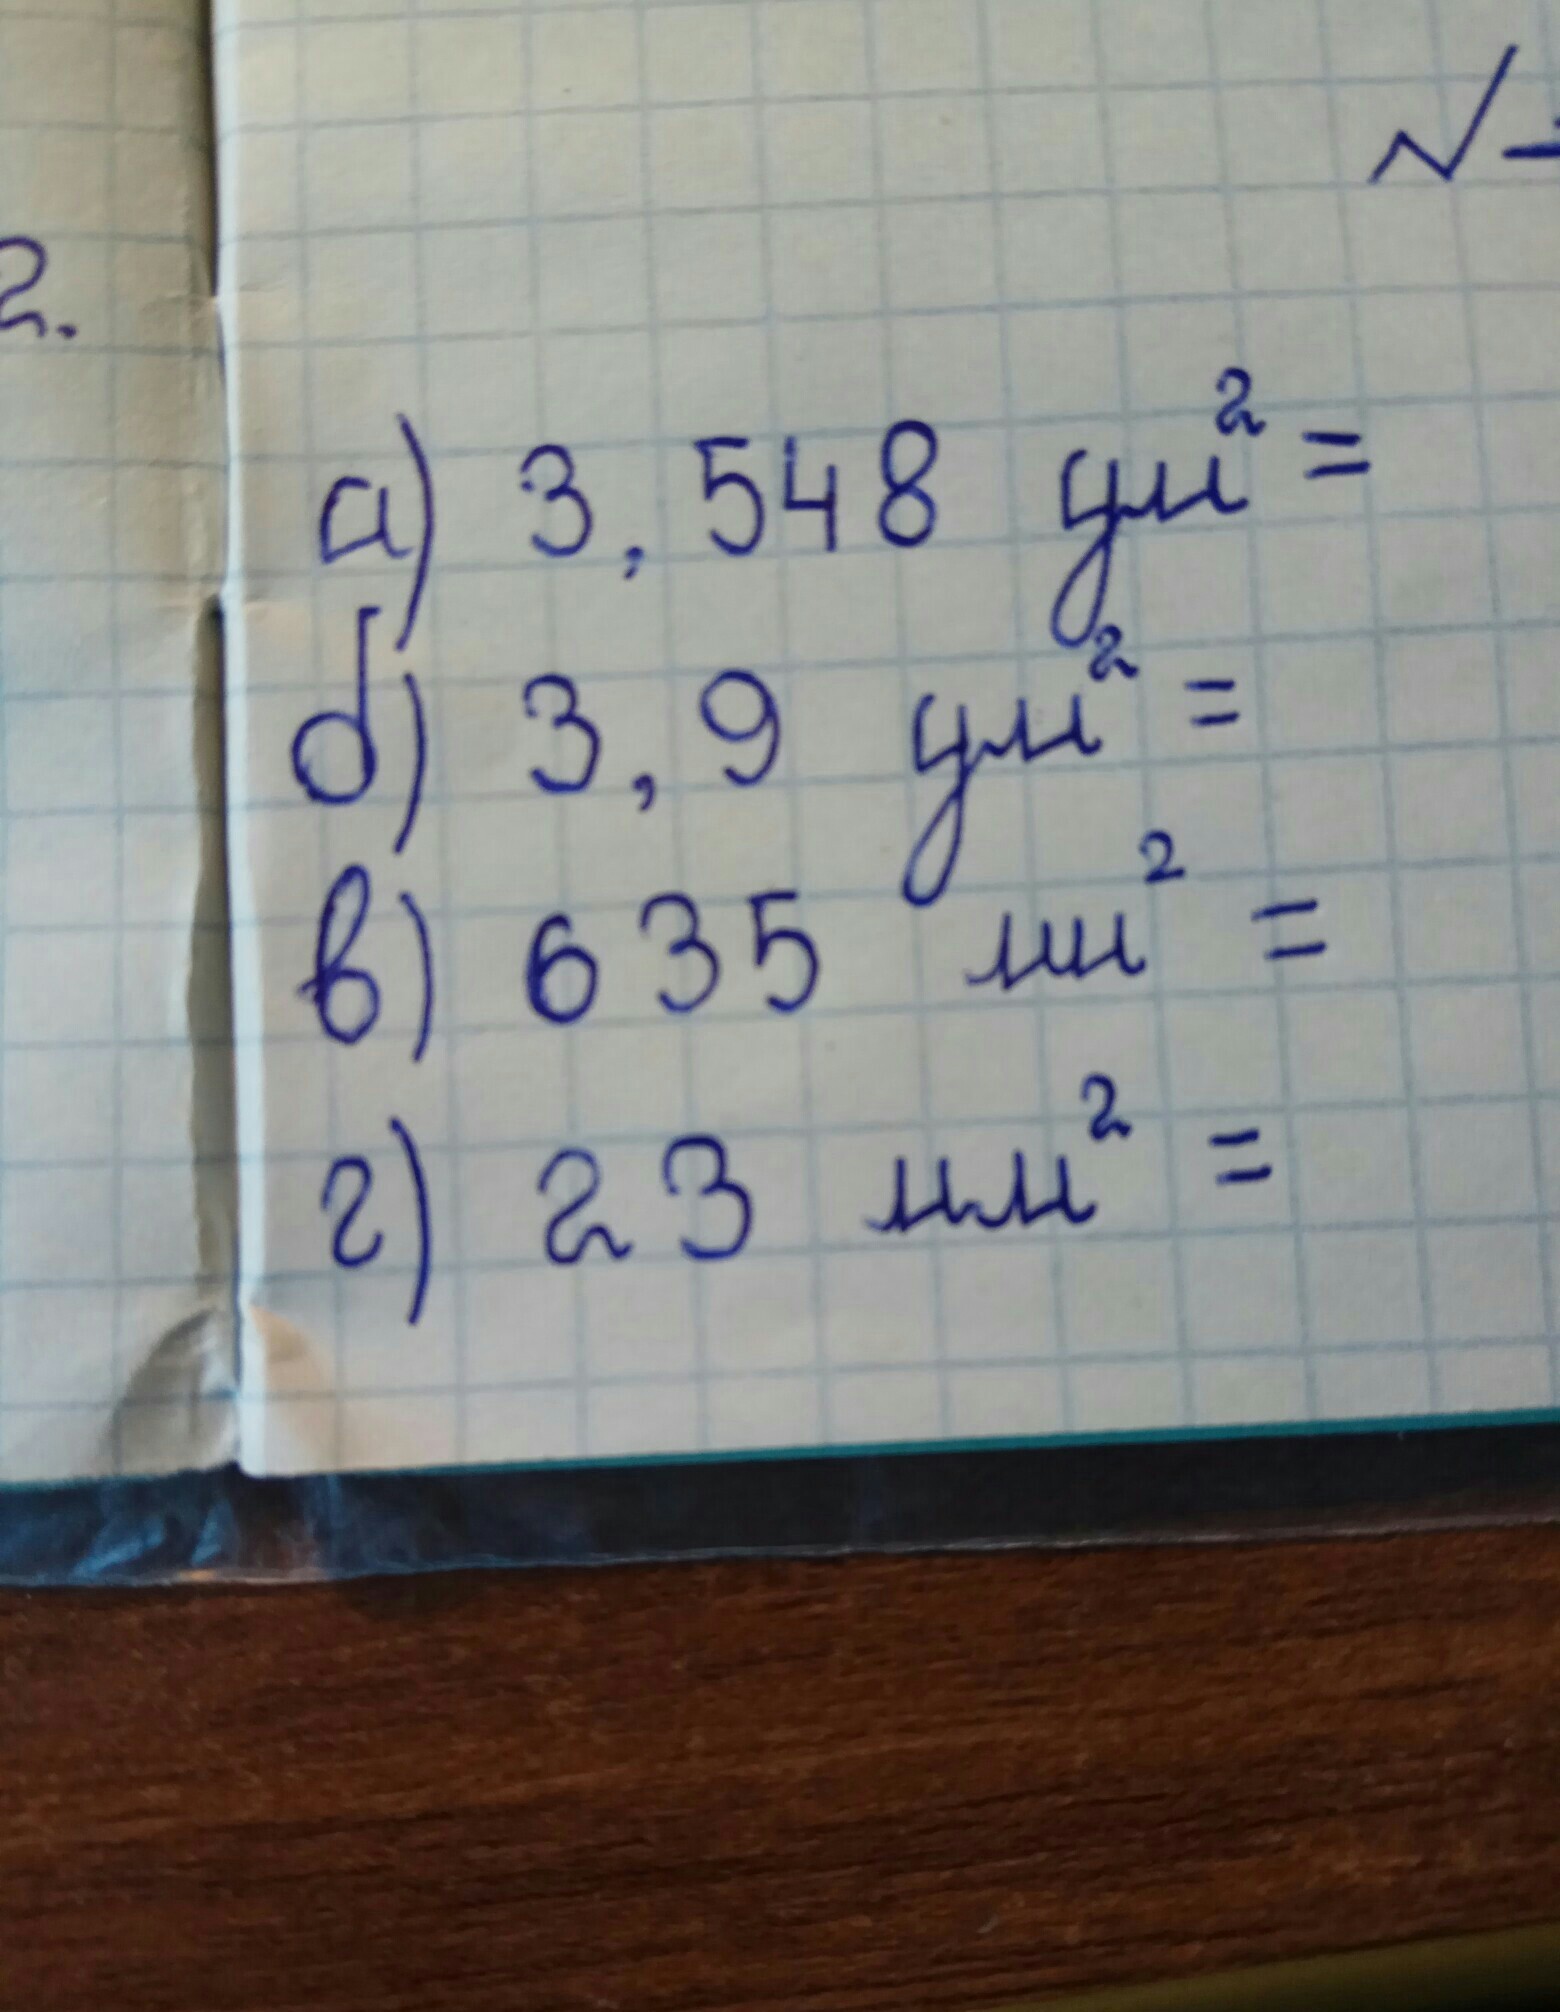 √
2.
а) 3,548 дм² =
б) 3,9 дм² =
в) 635 мм² =
г) 23 мм² =